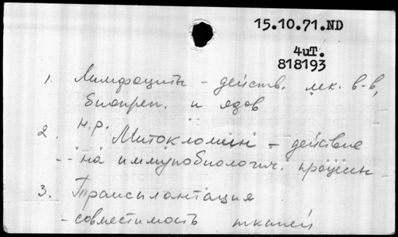 15.10.71.ND
4иТ.
818193
1. Лимфоциты - действ. лек. в-в,
биопреп. и ядов
2. н.р. Митокломин - действие
- на иммунобиологич. процессы
3. Трансплантация
- совместимость тканей